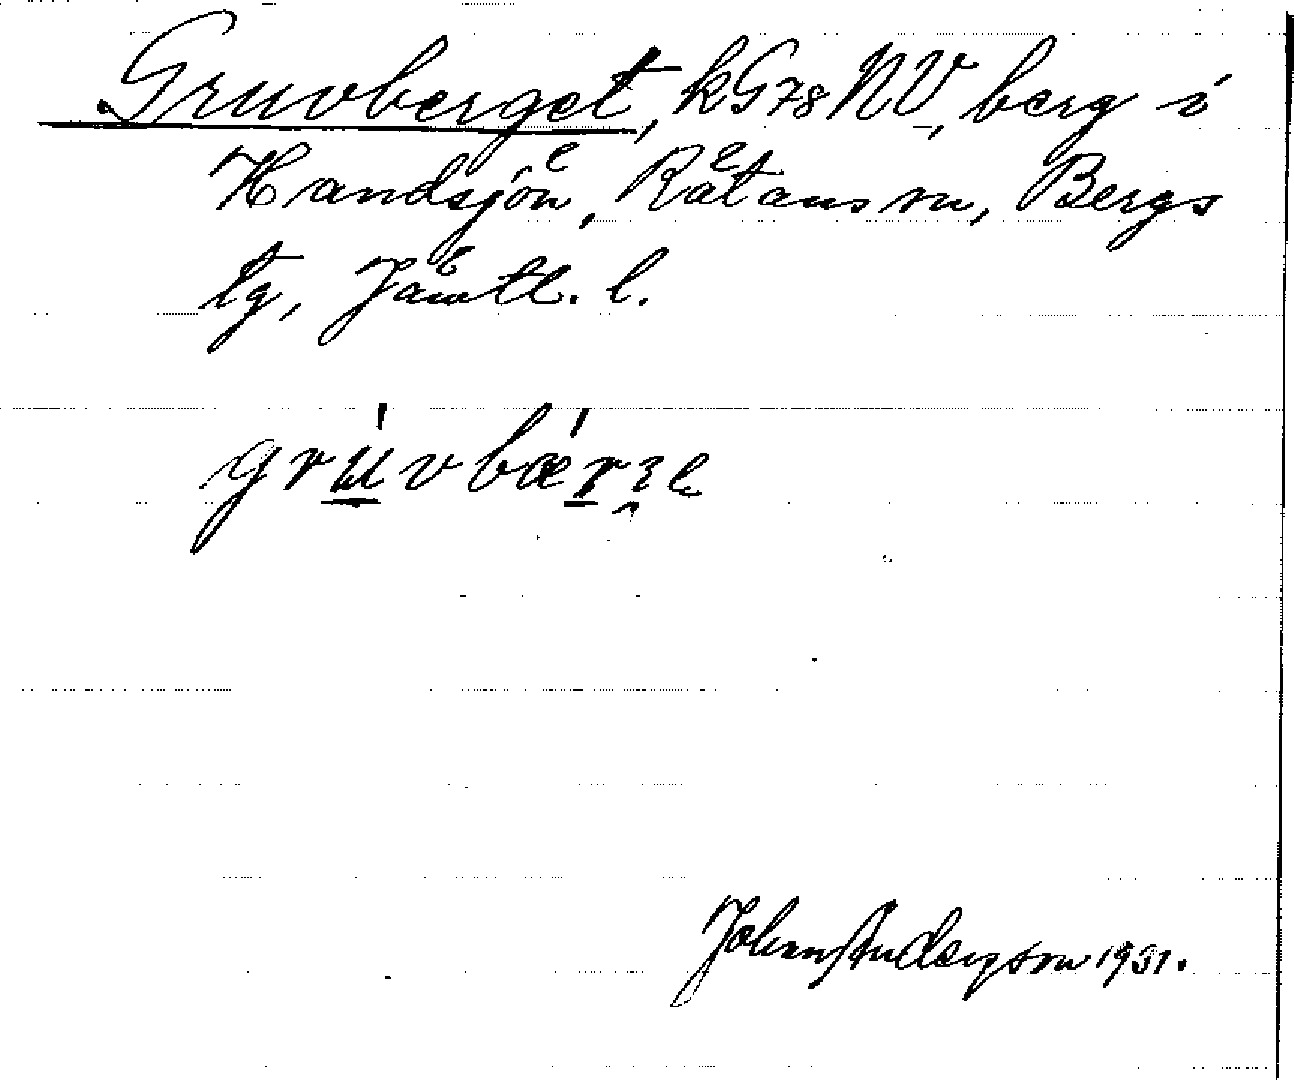 Gruvberget, k G 78 NV, berg i
Handsjön, Rätans sn, Bergs
tg, Jämtl. l.
Johan Anderson 1931.